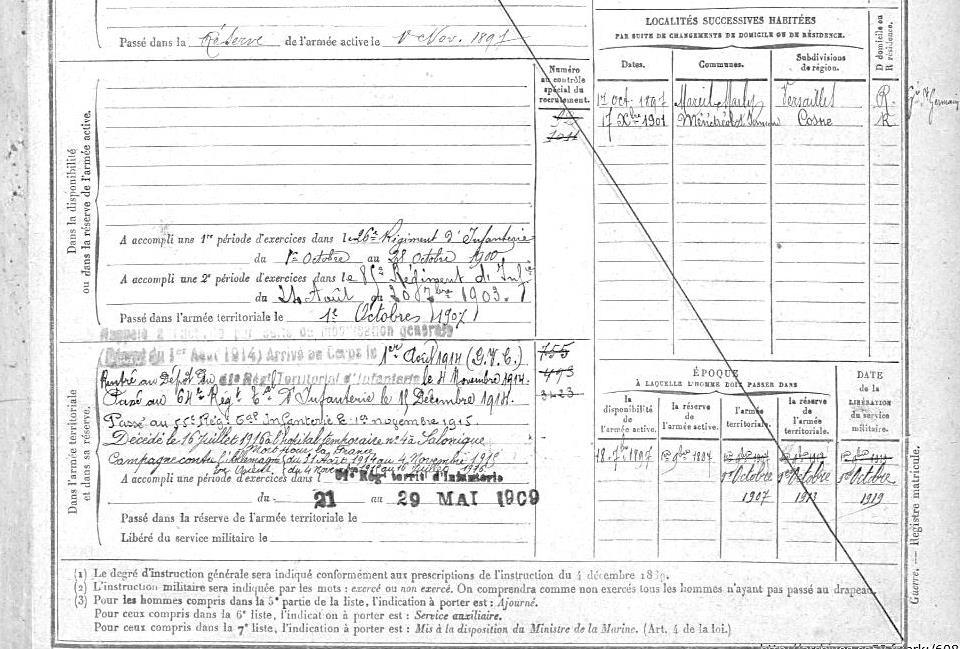 Passé dans la Réserve de l'armée active le 1er Nov. 1897
LOCALITÉS SUCCESSIVES HABITÉES
PAR SUITE DE CHANGEMENTS DE DOMICILE OU DE RÉSIDENCE.
D domicile ou
R résidence.
Dates. Communes. Subdivisions
de région.
17 Oct. 1897 Mareil-Marly Versailles R.
17 Xbre 1901 Cosne R
Numéro
au contrôle
spécial du
recrutement.
Dans la disponibilité
ou dans la réserve de l'armée active.
A accompli une 1re période d'exercices dans le 26e Régiment d'Infanterie
du 1er Octobre au 28 Octobre 1900
A accompli une 2e période d'exercices dans le 85e Régiment d'Infie
du 24 Août au 1903.
Passé dans l'armée territoriale le 1er Octobre 1907
Rappelé à l'activité par suite de mobilisation générale
(Décret du 1er Août 1914) Arrivé au Corps le 1er Août 1914 (G.V.C.)
755
Rentré au Dépôt du 61e Régt Territorial d'Infanterie le 4 Novembre 1914.
493
Passé au 64e Régt d'Infanterie le 15 Décembre 1914.
3423
Passé au 55e Régt d'Infanterie le 1er novembre 1915.
Décédé le 16 juillet 1916 à l'hôpital temporaire no 4 à Salonique
Mort pour la France
Campagne contre l'Allemagne du 31 Août 1914 au 4 Novembre 1915
du 4 novembre 1915 au 16 juillet 1916
Dans l'armée territoriale
et dans sa réserve.
A accompli une période d'exercices dans l 61e Régt territ. d'Infanterie
du 21 au 29 MAI 1909
Passé dans la réserve de l'armée territoriale le
Libéré du service militaire le
ÉPOQUE
À LAQUELLE L'HOMME DOIT PASSER DANS
DATE
de la
LIBÉRATION
du service
militaire.
la
disponibilité
de l'armée active.
la réserve
de
l'armée active.
l'armée
territoriale.
la réserve
de
l'armée
territoriale.
18 7bre 1897 1er 9bre 1897
1er Octobre 1er Octobre 1er Octobre
1907 1913 1919
Guerre. — Registre matricule.
(1) Le degré d'instruction générale sera indiqué conformément aux prescriptions de l'instruction du 4 décembre 1889.
(2) L'instruction militaire sera indiquée par les mots : exercé ou non exercé. On comprendra comme non exercés tous les hommes n'ayant pas passé au drapeau.
(3) Pour les hommes compris dans la 5e partie de la liste, l'indication à porter est : Ajourné.
Pour ceux compris dans la 6e liste, l'indication à porter est : Service auxiliaire.
Pour ceux compris dans la 7e liste, l'indication à porter est : Mis à la disposition du Ministre de la Marine. (Art. 4 de la loi.)